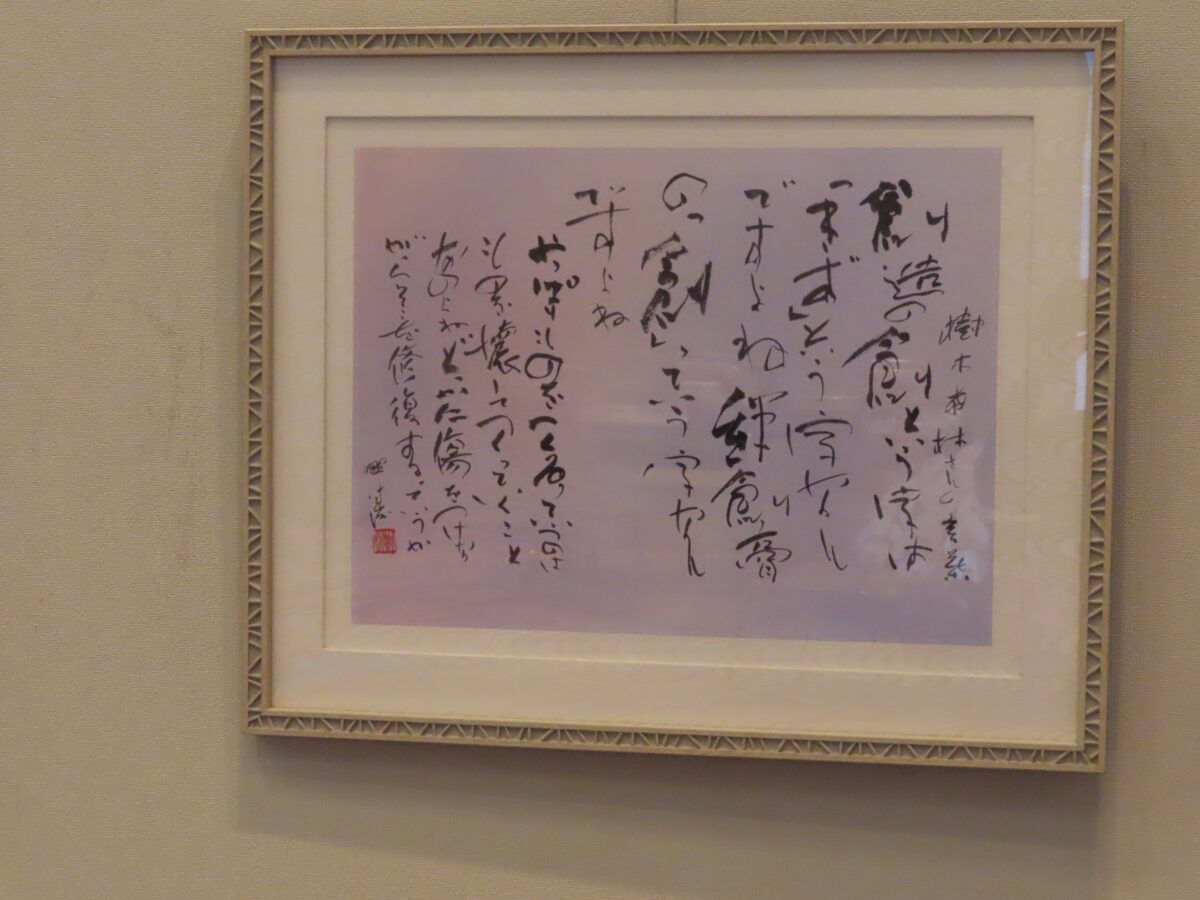 樹木希林さんの言葉
創造の創という字は
「きず」という字なん
ですよね絆創膏
の「創」っていう字なん
ですよね
やっぱりものをつくるっていうのは
ものを壊してつくっていくこと
なのよねどこかに傷をつけな
がらそこを修復するっていうか